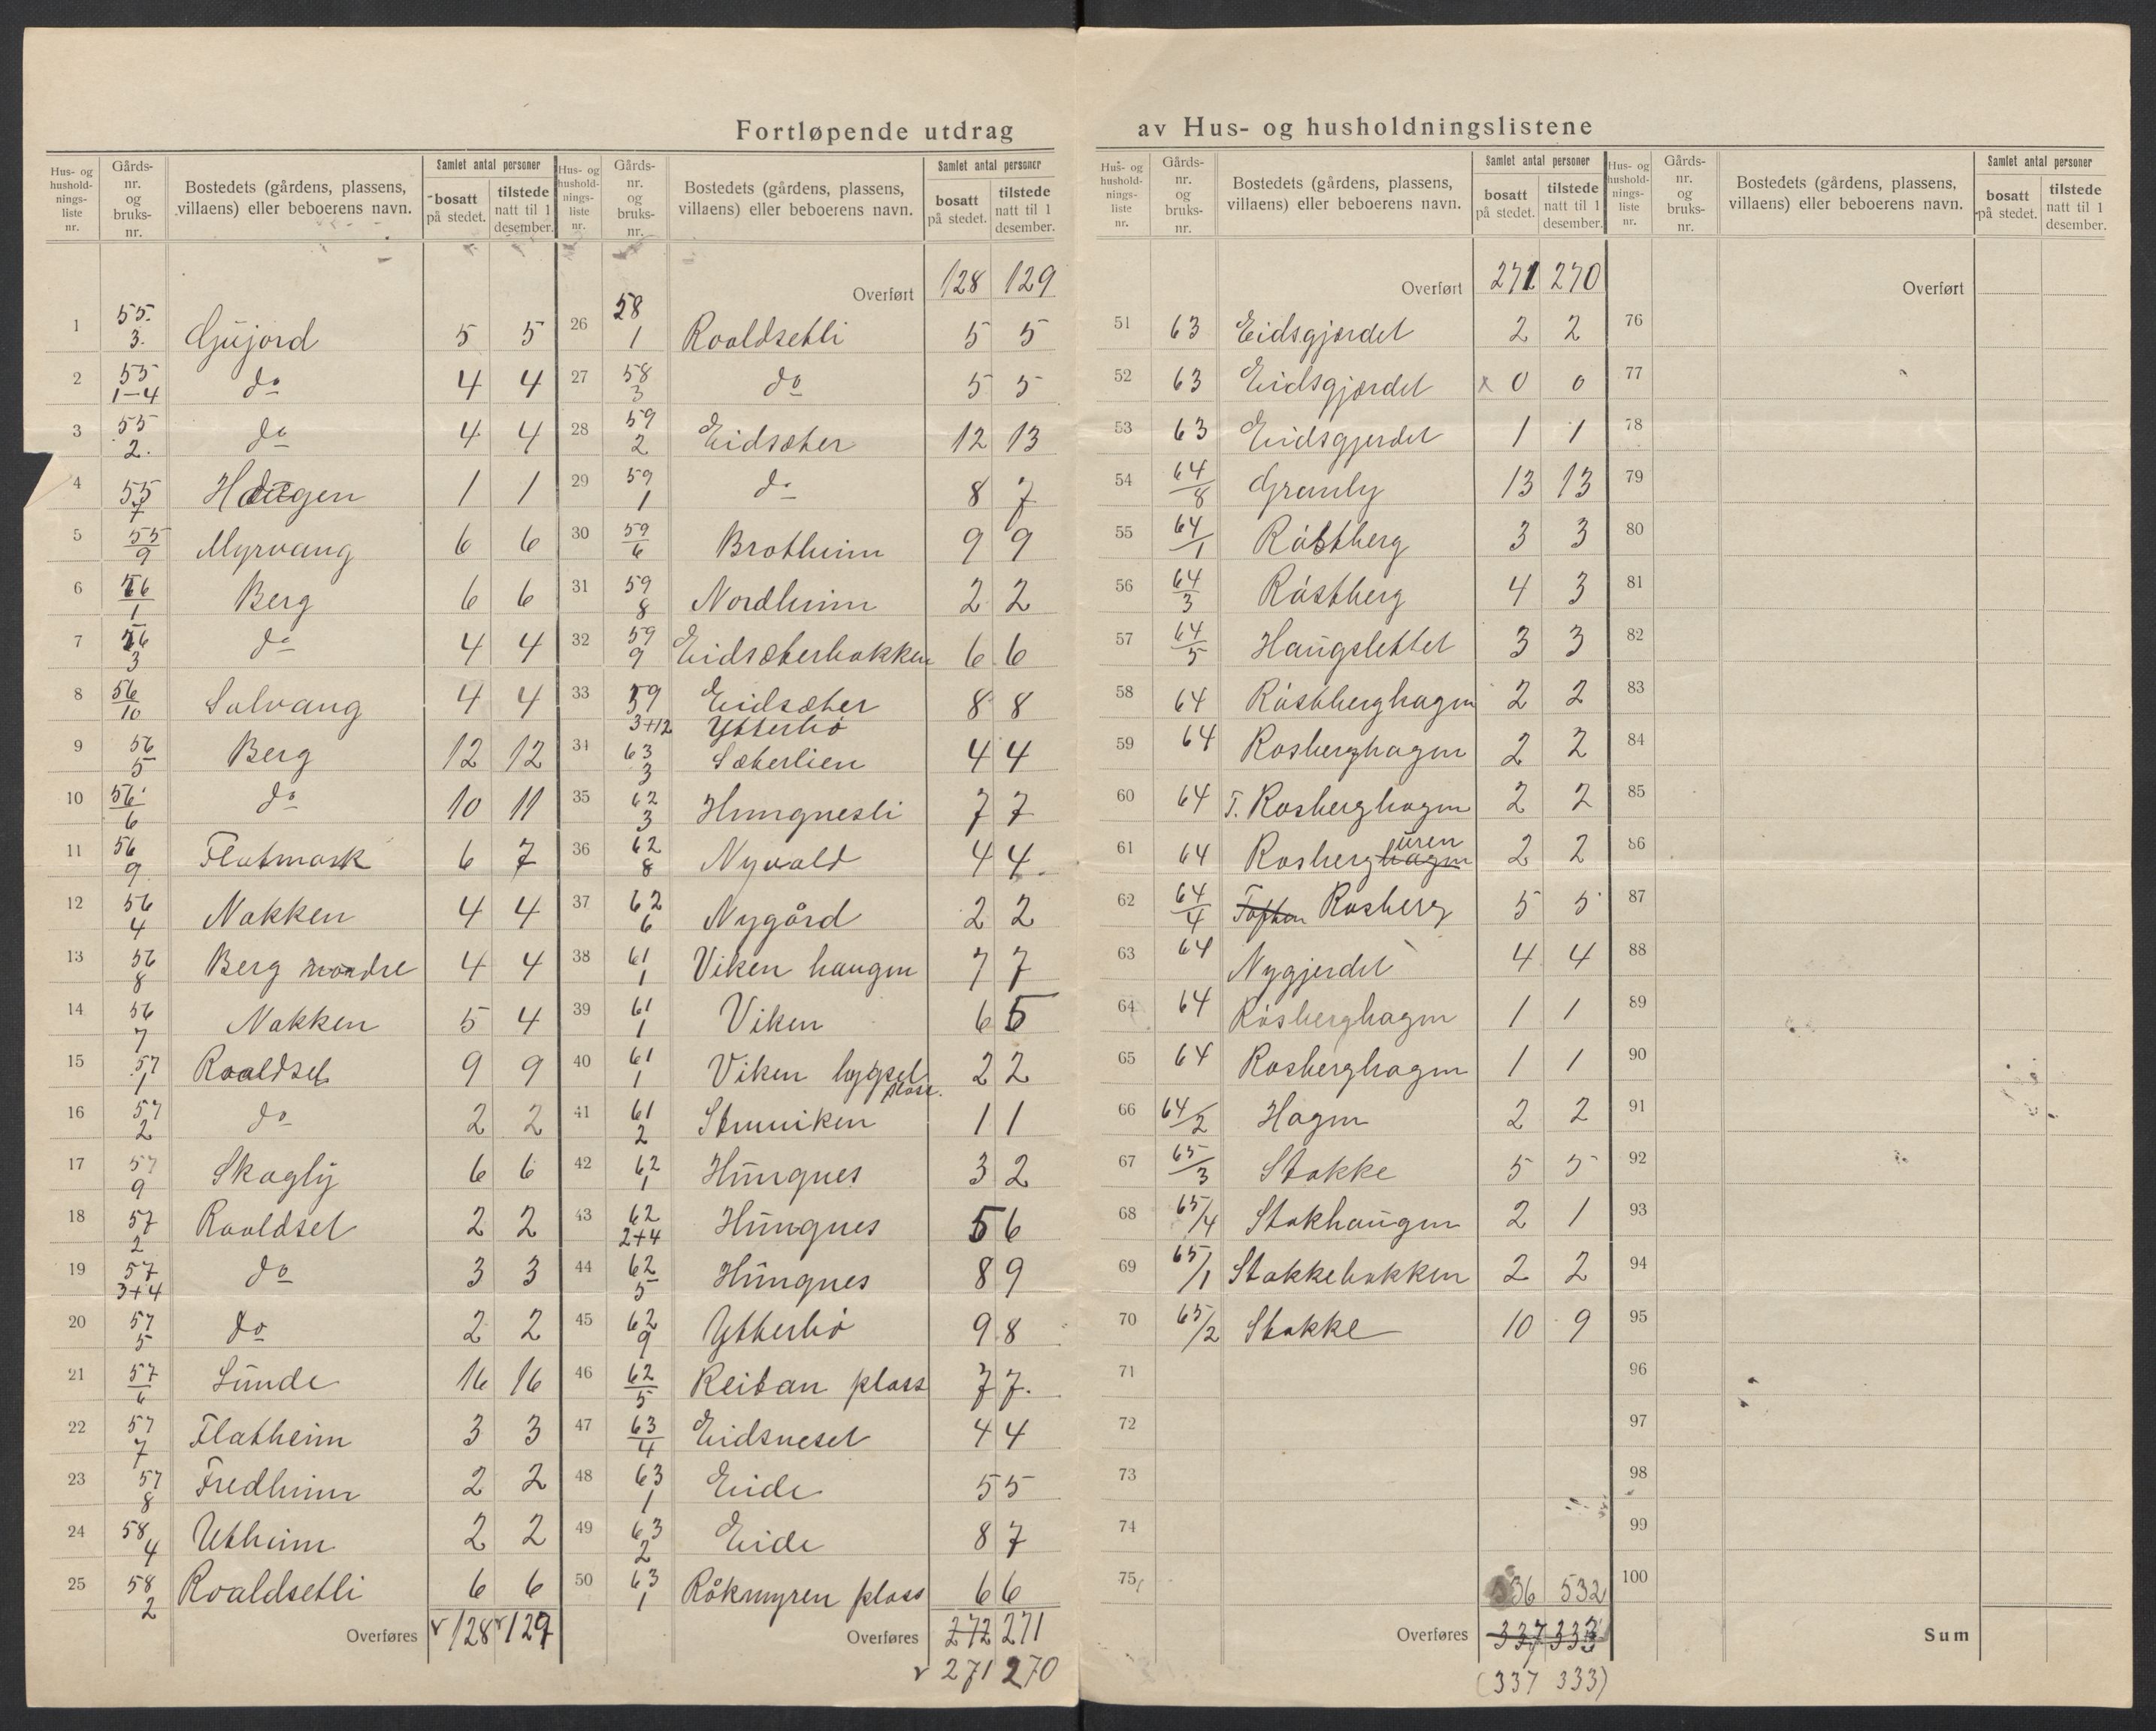 Fortløpende utdrag av Hus- og husholdningslistene
Hus- og hushold-nings-liste nr. Gårds-nr. og bruks-nr. Bostedets (gårdens, plassens, villaens) eller beboerens navn. Samlet antal personer bosatt på stedet. tilstede natt til 1 desember.
1 55 3. Gujord 5 5
2 55 1-4 do 4 4
3 55 2. do 4 4
4 55 7 Haugen 1 1
5 55 9 Myrvang 6 6
6 56 1 Berg 6 6
7 56 3 do 4 4
8 56 10 Solvang 4 4
9 56 5 Berg 12 12
10 56 6 do 10 11
11 56 9 Flatmark 6 7
12 56 4 Nakken 4 4
13 56 8 Berg nordre 4 4
14 56 7 Nakken 5 4
15 57 1 Roaldset 9 9
16 57 2 do 2 2
17 57 9 Skogly 6 6
18 57 2 Roaldset 2 2
19 57 3+4 do 3 3
20 57 5 do 2 2
21 57 6 Sunde 16 16
22 57 7 Flatheim 3 3
23 57 8 Fredheim 2 2
24 58 4 Utheim 2 2
25 58 2 Roaldsetli 6 6
Overføres 128 129
Hus- og hushold-nings-liste nr. Gårds-nr. og bruks-nr. Bostedets (gårdens, plassens, villaens) eller beboerens navn. Samlet antal personer bosatt på stedet. tilstede natt til 1 desember.
Overført 128 129
26 58 1 Roaldsetli 5 5
27 58 3 do 5 5
28 59 2 Eidsæter 12 13
29 59 1 do 8 7
30 59 6 Brotheim 9 9
31 59 8 Nordheim 2 2
32 59 9 Eidsæterbakken 6 6
33 59 3+12 Eidsæter Ytterbø 8 8
34 63 3 Sæterlien 4 4
35 62 3 Hungnesli 7 7
36 62 8 Nyvold 4 4.
37 62 6 Nygård 2 2
38 61 1 Viken haugen 7 7
39 61 1 Viken 6 5
40 61 1 Viken bygsel plass. 2 2
41 61 2 Stenviken 1 1
42 62 1 Hungnes 3 2
43 62 2+4 Hungnes 5 6
44 62 5 Hungnes 8 9
45 62 9 Ytterbø 9 8
46 62 5 Reitan plass 7 7.
47 63 4 Eidsneset 4 4
48 63 1 Eide 5 5
49 63 2 Eide 8 7
50 63 1 Råkmyren plass 6 6
Overføres 272 271
271 270
Hus- og hushold-nings-liste nr. Gårds-nr. og bruks-nr. Bostedets (gårdens, plassens, villaens) eller beboerens navn. Samlet antal personer bosatt på stedet. tilstede natt til 1 desember.
Overført 271 270
51 63 Eidsgjørdet 2 2
52 63 Eidsgjørdet x 0 0
53 63 Eidsgjerdet 1 1
54 64 8 Granly 13 13
55 64 1 Råstberg 3 3
56 64 3 Råstberg 4 3
57 64 5 Haugslettet 3 3
58 64 Råstberghagen 2 2
59 64 Rosberghagen 2 2
60 64 T. Rosberghagen 2 2
61 64 Rosberghagen uren 2 2
62 64 4 Toften Rosberg 5 5
63 64 Nygjerdet 4 4
64 64 Råsberghagen 1 1
65 64 Rosberghagen 1 1
66 64/2 Hagen 2 2
67 65/3 Stokke 5 5
68 65/4 Stokhaugen 2 1
69 65/1 Stokkebakken 2 2
70 65/2 Stokke 10 9
71
72
73
74
75 336 532
Overføres 337 333
(337 333)
Hus- og hushold-nings-liste nr. Gårds-nr. og bruks-nr. Bostedets (gårdens, plassens, villaens) eller beboerens navn. Samlet antal personer bosatt på stedet. tilstede natt til 1 desember.
Overført
76
77
78
79
80
81
82
83
84
85
86
87
88
89
90
91
92
93
94
95
96
97
98
99
100
Sum